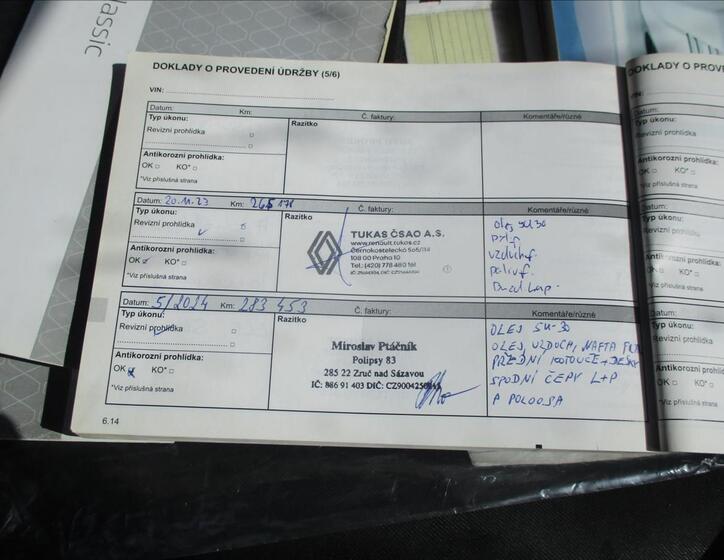 Classic
DOKLADY O PROVEDENÍ ÚDRŽBY (5/6)
VIN:
Datum: Km: Č. faktury: Komentáře/různé
Typ úkonu: Razítko
Revizní prohlídka
Antikorozní prohlídka:
OK KO*
*Viz příslušná strana
Datum: 20.11.23 Km: 265 171 Č. faktury: Komentáře/různé
Typ úkonu: Razítko
Revizní prohlídka
Antikorozní prohlídka:
OK KO*
*Viz příslušná strana
TUKAS ČSAO A.S.
www.renault.tukas.cz
Černokostelecká
108 00 Praha 10
Tel.: (420)
olej 5W30
vzduch f.
paliv f.
Datum: 5/2024 Km: 283 453 Č. faktury: Komentáře/různé
Typ úkonu: Razítko
Revizní prohlídka
Antikorozní prohlídka:
OK KO*
*Viz příslušná strana
Miroslav Ptáčník
Polipsy 83
285 22 Zruč nad Sázavou
IČ: 886 91 403 DIČ:
OLEJ 5W-30
OLEJ, VZDUCH, NAFTA
PŘEDNÍ KOTOUČE + DESKY
SPODNÍ ČEPY L+P
P POLOOSA
6.14
DOKLADY O PROVE
VIN:
Datum:
Typ úkonu:
Revizní prohlídka
Antikorozní prohlídka:
OK KO*
*Viz příslušná strana
Datum:
Typ úkonu:
Revizní prohlídka
OK KO*
*Viz příslušná strana
Datum:
Typ úkonu:
Revizní prohlídka
Antikorozní prohlídka:
OK KO*
*Viz příslušná strana